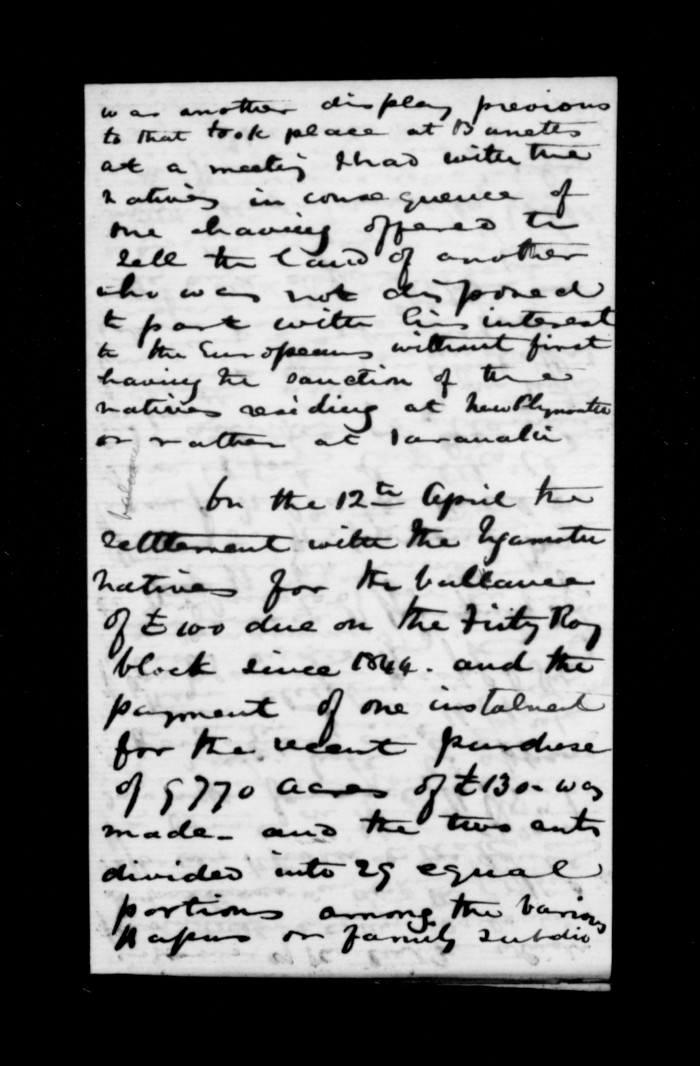 was another display previous
to that took place at Burnetts
at a meeting I had with the
natives in consequence of
one having offered to
sell the land of another
who was not disposed
to part with his interest
to the Europeans without first
having the sanction of the
natives residing at New Plymouth
or rather at Taranaki
balance
On the 12th April the
settlement with the Ngamotu
natives for the ballance
of £100 due on the Fitz Roy
block since 1844. and the
payment of one instalment
for the recent purchase
of 9770 acres of £130 - was
made - and the two
divided into 29 equal
portions among the various
hapus or family subdiv